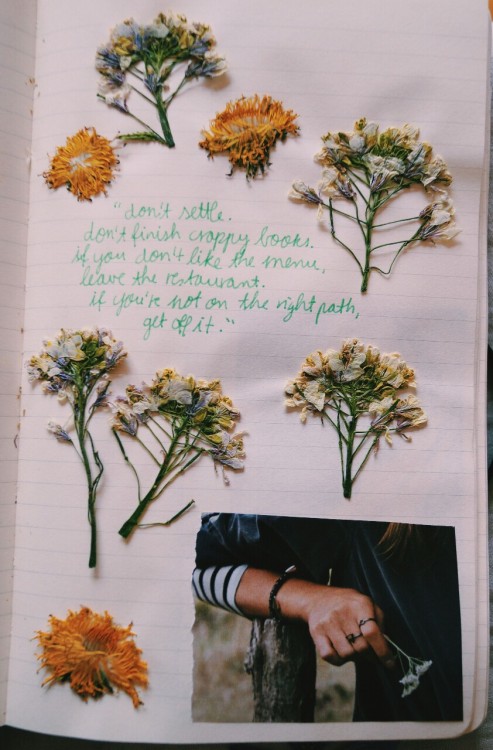 "don't settle.
don't finish crappy books.
if you don't like the menu,
leave the restaurant.
if you're not on the right path,
get off it."